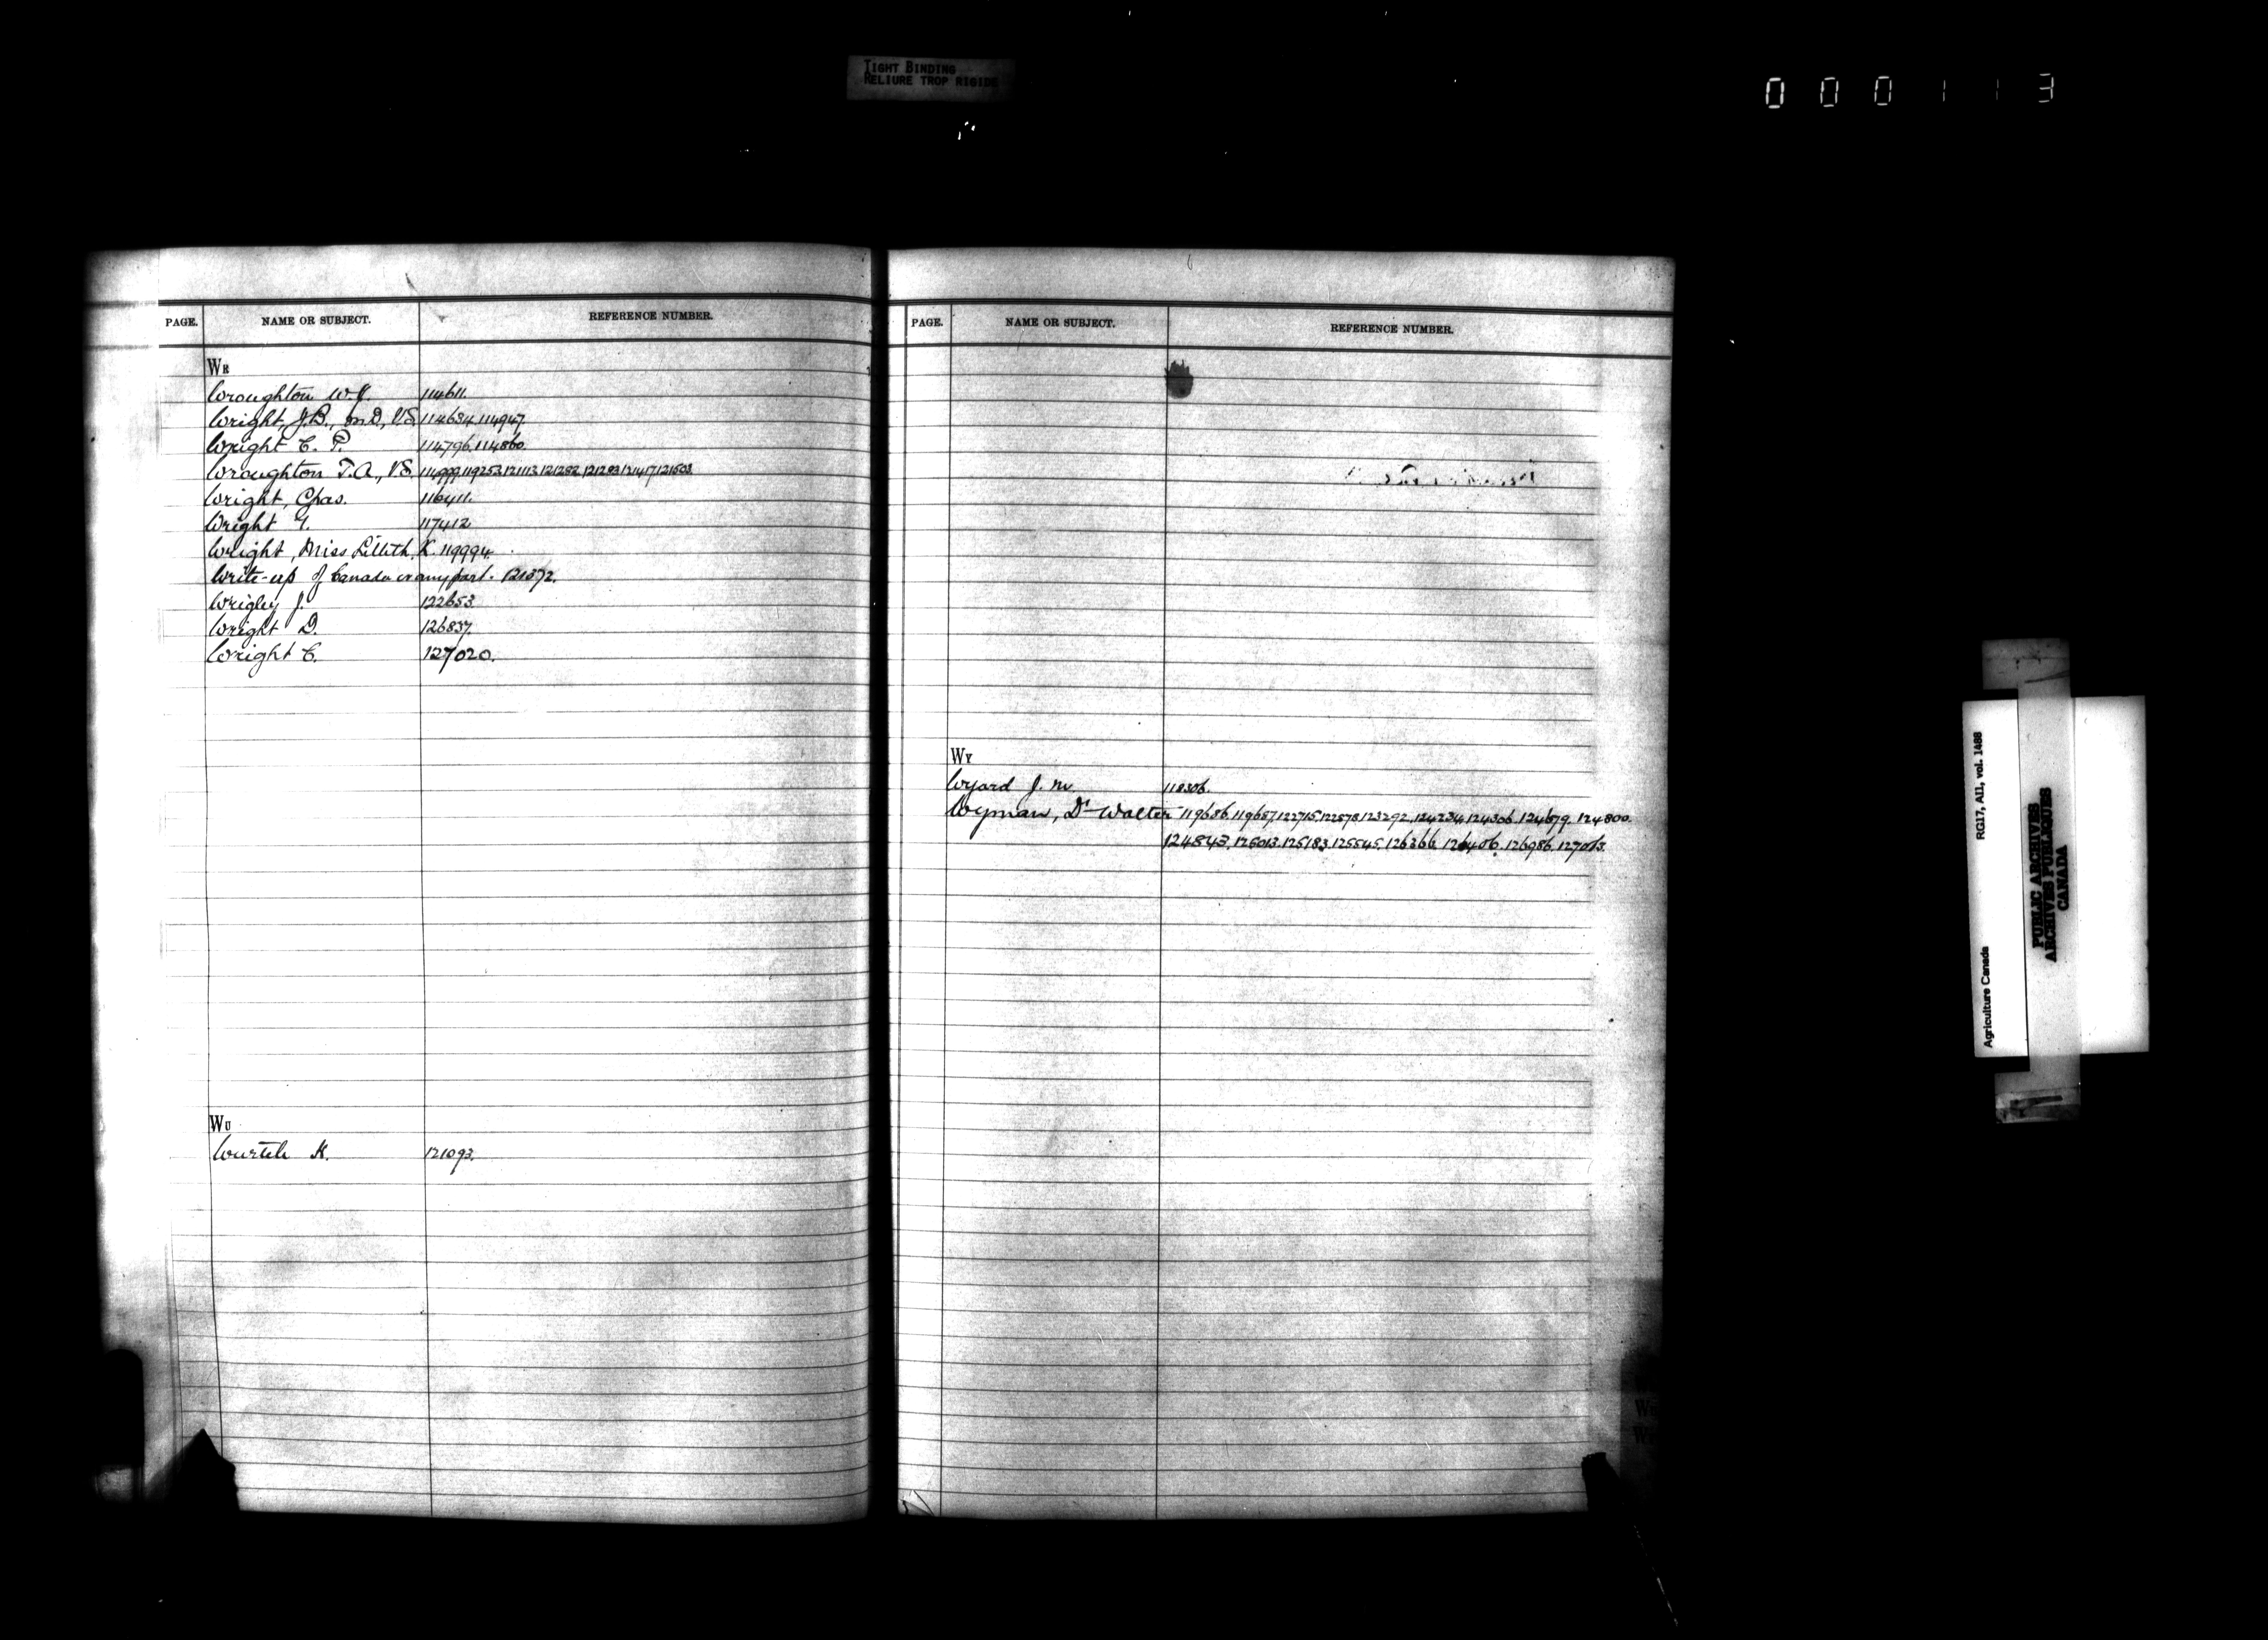 TIGHT BINDING
RELIURE TROP RIGIDE
000113
PAGE. NAME OR SUBJECT. REFERENCE NUMBER.
WR
Wroughton W.H. 114611.
Wright, J.B., M.D., V.S. 114634. 114947.
Wright C. P. 114796. 114860.
Wroughton T.A., V.S. 114999. 119253. 121113. 121282. 121283. 121417. 121503.
Wright, Chas. 116411.
Wright Y. 117412.
Wright, Miss Lillith K. 119994.
Write-up of Canada or any part. 121372.
Wrigley J. 122653.
Wright D. 126837.
Wright C. 127020.
WU
Wurtele H. 121093.
PAGE. NAME OR SUBJECT. REFERENCE NUMBER.
WY
Wyard J. M. 118306.
Wyman, Dr Walter 119686. 119687. 122715. 122878. 123292. 124234. 124306. 124679. 124800.
124843. 125013. 125183. 125545. 126366. 126406. 126986. 127013.
Agriculture Canada RG17, AII, vol. 1488
PUBLIC ARCHIVES
ARCHIVES PUBLIQUES
CANADA